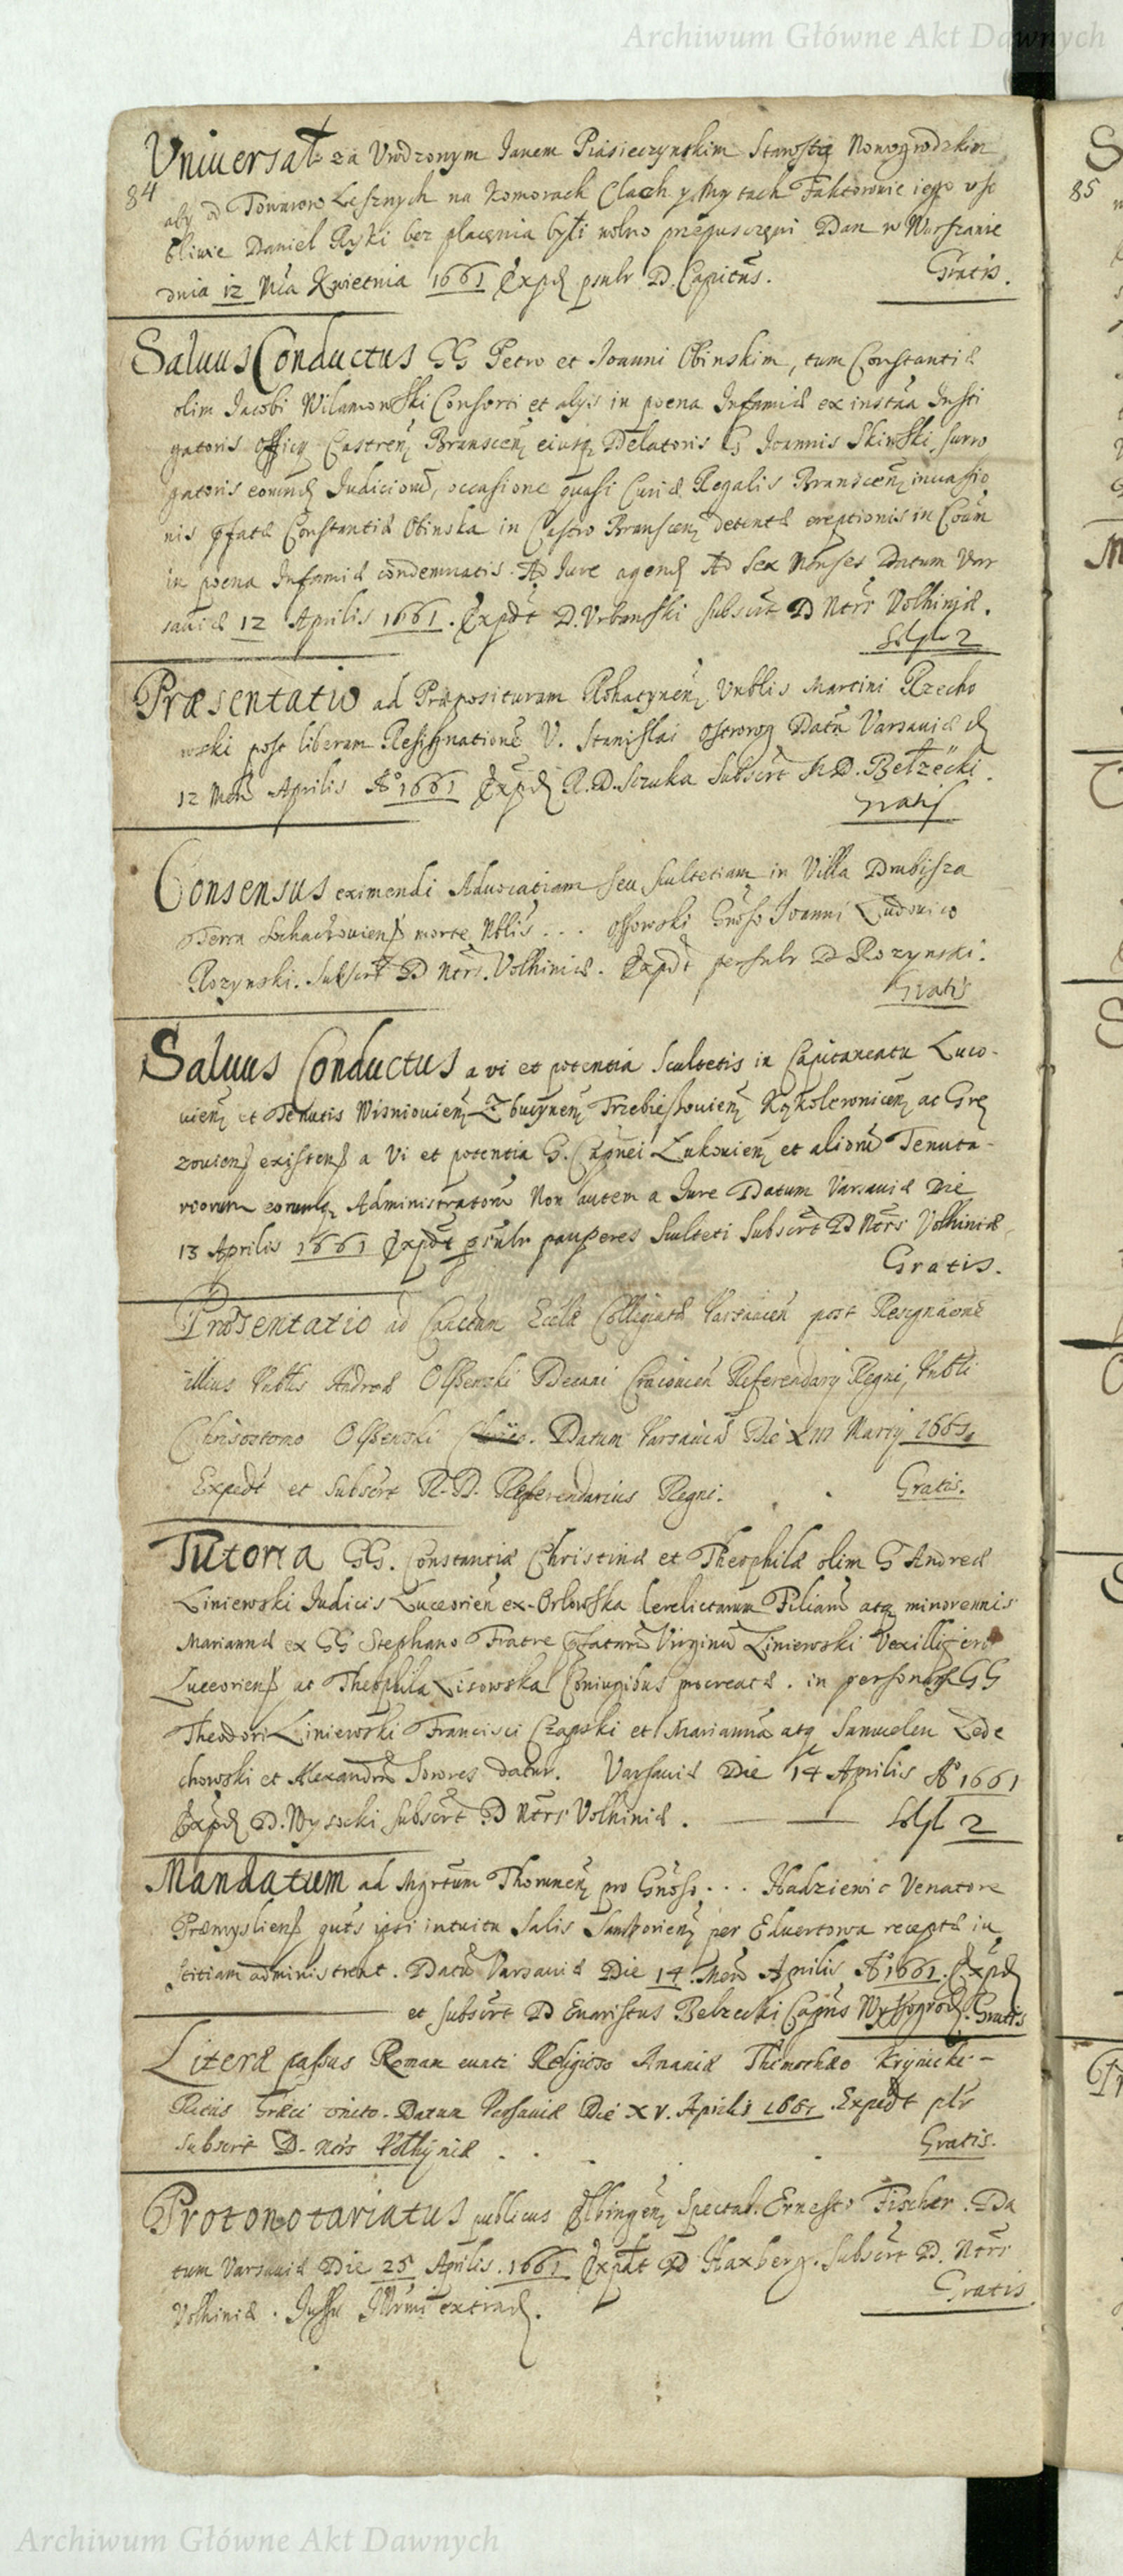 Archiwum Główne Akt Dawnych
84
Uniuersał za Urodzonym Janem Piasieczynskim Starostą Nowogrodzkim
aby od Towarow Lesznych na Komorach Clach y Mytach Faktorowie iego
Daniel Ryski bez płacęnia byłi wolno przepuszczęni Dan w Warszawie
dnia 12 Mca Kwietnia 1661 Expd D. Capitus.
Gratis.
Saluus Conductus GG Petro et Joanni Obinskim, tum Constantiæ
olim Jacobi Wilamowski Consorti et alys in poena Infamiæ ex insta͞a Insti
gatoris Officy Castren Branscen eiusq Delatoris G Joannis Skiwski surro
gatoris eorund Judiciorū, occasione quasi Curiæ Regalis Branscen inuasio
nis pfatæ Constantiæ Obinska in Castro Branscen detentæ ereptionis in
in poena Infamiæ condemnatis. Ad Jure agend Ad Sex Menses Datum Var
sauiæ 12 Aprilis 1661. Expdt D. Urbanski subscrt D Ntrs Volhiniæ.
2
Præsentatio ad Præposituram Rohatynen Vnblis Martini Rzecho
wski post liberam Resignationē V. Stanislai Ostrorog Datū Varsauiæ d
12 Men Aprilis Aº 1661 Expd R.D. Sczuka Subscrt M.D. Bełzecki.
Gratis
Consensus eximendi Aduocatiam seu Scultetiam in Villa Drubisza
Terra Sochaczouiens morte Nblis . . . Ossowski Gnoso Joanni Ludouico
Rozynski. Subscrt D Ntrs. Volhiniæ. Expdt D Rozynski.
Gratis
Saluus Conductus a vi et potentia Scultetis in Capitaneatu Luco-
uien et Tenutis Wisniouien Zbuczynen Trzebieszouien Kąkolewnicen ac Grę
zouiens existens a Vi et potentia G. Capnei Lukouien et aliorū Tenuta-
riorum eorumq Administratorū Non autem a Jure Datum Varsauiæ Die
13 Aprilis 1661 Expdt psnlr pauperes Sculteti Subscrt D Ntrs Volhiniæ
Gratis.
Præsentatio ad Eccle Collegiatæ Varsauien post Resignãonē
illius Vnblis Andreæ Olszewski Decani Cracouien Referendary Regni, Vnbli
Chrisostomo Olszewski. Datum Varsauiæ Die XIII Marty 1661.
Expedt et Subscrt R. D. Referendarius Regni.
Gratis.
Tutoria GG. Constantiæ Christinæ et Theophilæ olim G Andreæ
Liniewski Judicis Luceorien ex Orlowska derelictarum Filiarū atq minorennis
Mariannæ ex GG Stephano Fratre pfatarū Virginū Liniewski Vexilligero
Luceoriens ac Theophila Lisowska Coniugibus procreatæ. in personas GG
Theodori Liniewski Francisci Czapski et Marianna atq Samuelen Lede
chowski et Alexandrā Sorores datur. Varsauiæ Die 14 Aprilis Aº 1661
Expd D. Wysocki Subscrt D Ntrs Volhiniæ.
2
Mandatum ad Mgrtum Thorunen pro Gnoso . . . Hadziewic Venatore
Præmysliens quts ipsi intuitu Salis Samborien per Eduertowa receptæ iu
stitiam administrent. Datū Varsauiæ Die 14 Men Aprilis Aº 1661. Expd
et Subscrt D Euaristus Belzecki Capns Wyszogrod. Gratis
Literæ passus Roman eunti Religioso Ananiæ Thimotheo Krynicki-
Ritus Græci vnito. Datum Varsauiæ Die XV. Aprilis 1661. Expedt
Subscrt D. Ntrs Volhyniæ
Gratis.
Protonotariatus publicus Elbingen Spectab. Ernesto Fischer. Da
tum Varsauiæ Die 25 Aprilis. 1661 Expdt D Haxberg. Subscrt D. Ntrs
Volhiniæ. Jussu Illrmi extrad.
Gratis
85
Archiwum Główne Akt Dawnych